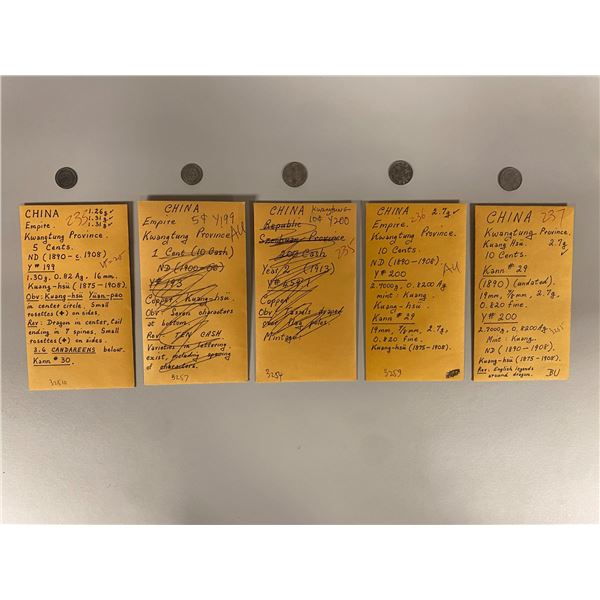 CHINA
235
1.26g ✓
1.31g ✓
1.31g ✓
Empire.
Kwangtung Province.
5 Cents.
ND (1890-c.1908)
Y# 199
1.30g. 0.82 Ag. 16mm.
Kuang-hsü (1875-1908).
Obv: Kuang-hsü Yüan-pao
in center circle. Small
rosettes (+) on sides.
Rev: Dragon in center, tail
ending in 7 spines. Small
rosettes (+) on sides.
3.6 CANDAREENS below.
Kann #30.
CHINA
Empire 5¢ Y199
Kwangtung Province AU
1 Cent (10 Cash)
ND (1900-06)
Y# 193
Copper. Kuang-hsü.
Obv: Seven characters
at bottom.
Rev: TEN CASH
Varieties in lettering
exist, including spacing
of characters.
3257
CHINA Kwangtung
Republic 10¢ Y200
Szechuan Province
200 Cash
Year 2 (1913)
Y# 459.1
Copper
Obv: Tassels draped
over flag poles.
Mintage
3254
CHINA 2.7g ✓
Empire. 236
Kwangtung Province.
10 Cents.
ND (1890-1908).
Y# 200 AU
2.7000g, 0.8200 Ag
mint: Kuang
Kuang-hsü.
Kann #29
19mm, 7/8 mm, 2.7g.
0.820 fine.
Kuang-hsü (1875-1908).
3259
CHINA 237
Kwangtung Province.
Kuang Hsü. 2.7g ✓
10 Cents.
Kann #29
(1890) (undated).
19mm, 7/8 mm, 2.7g.
0.820 fine.
Y# 200
2.7000g, 0.8200 Ag
Mint: Kuang.
ND (1890-1908).
Kuang-hsü (1875-1908).
Rev: English legends
around dragon. BU